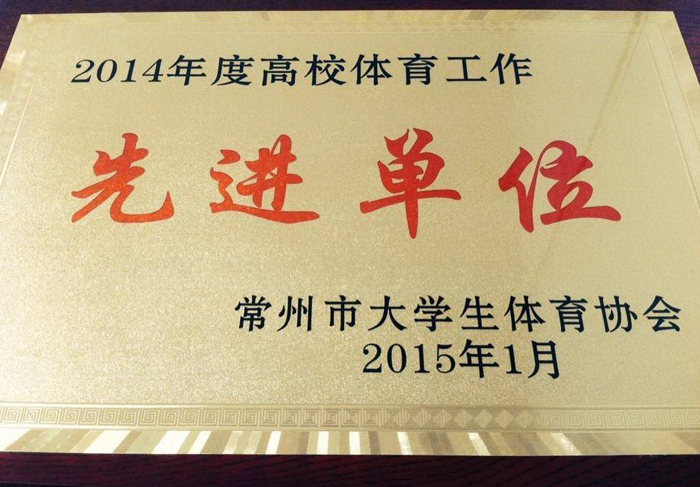 2014年度高校体育工作
先进单位
常州市大学生体育协会
2015年1月